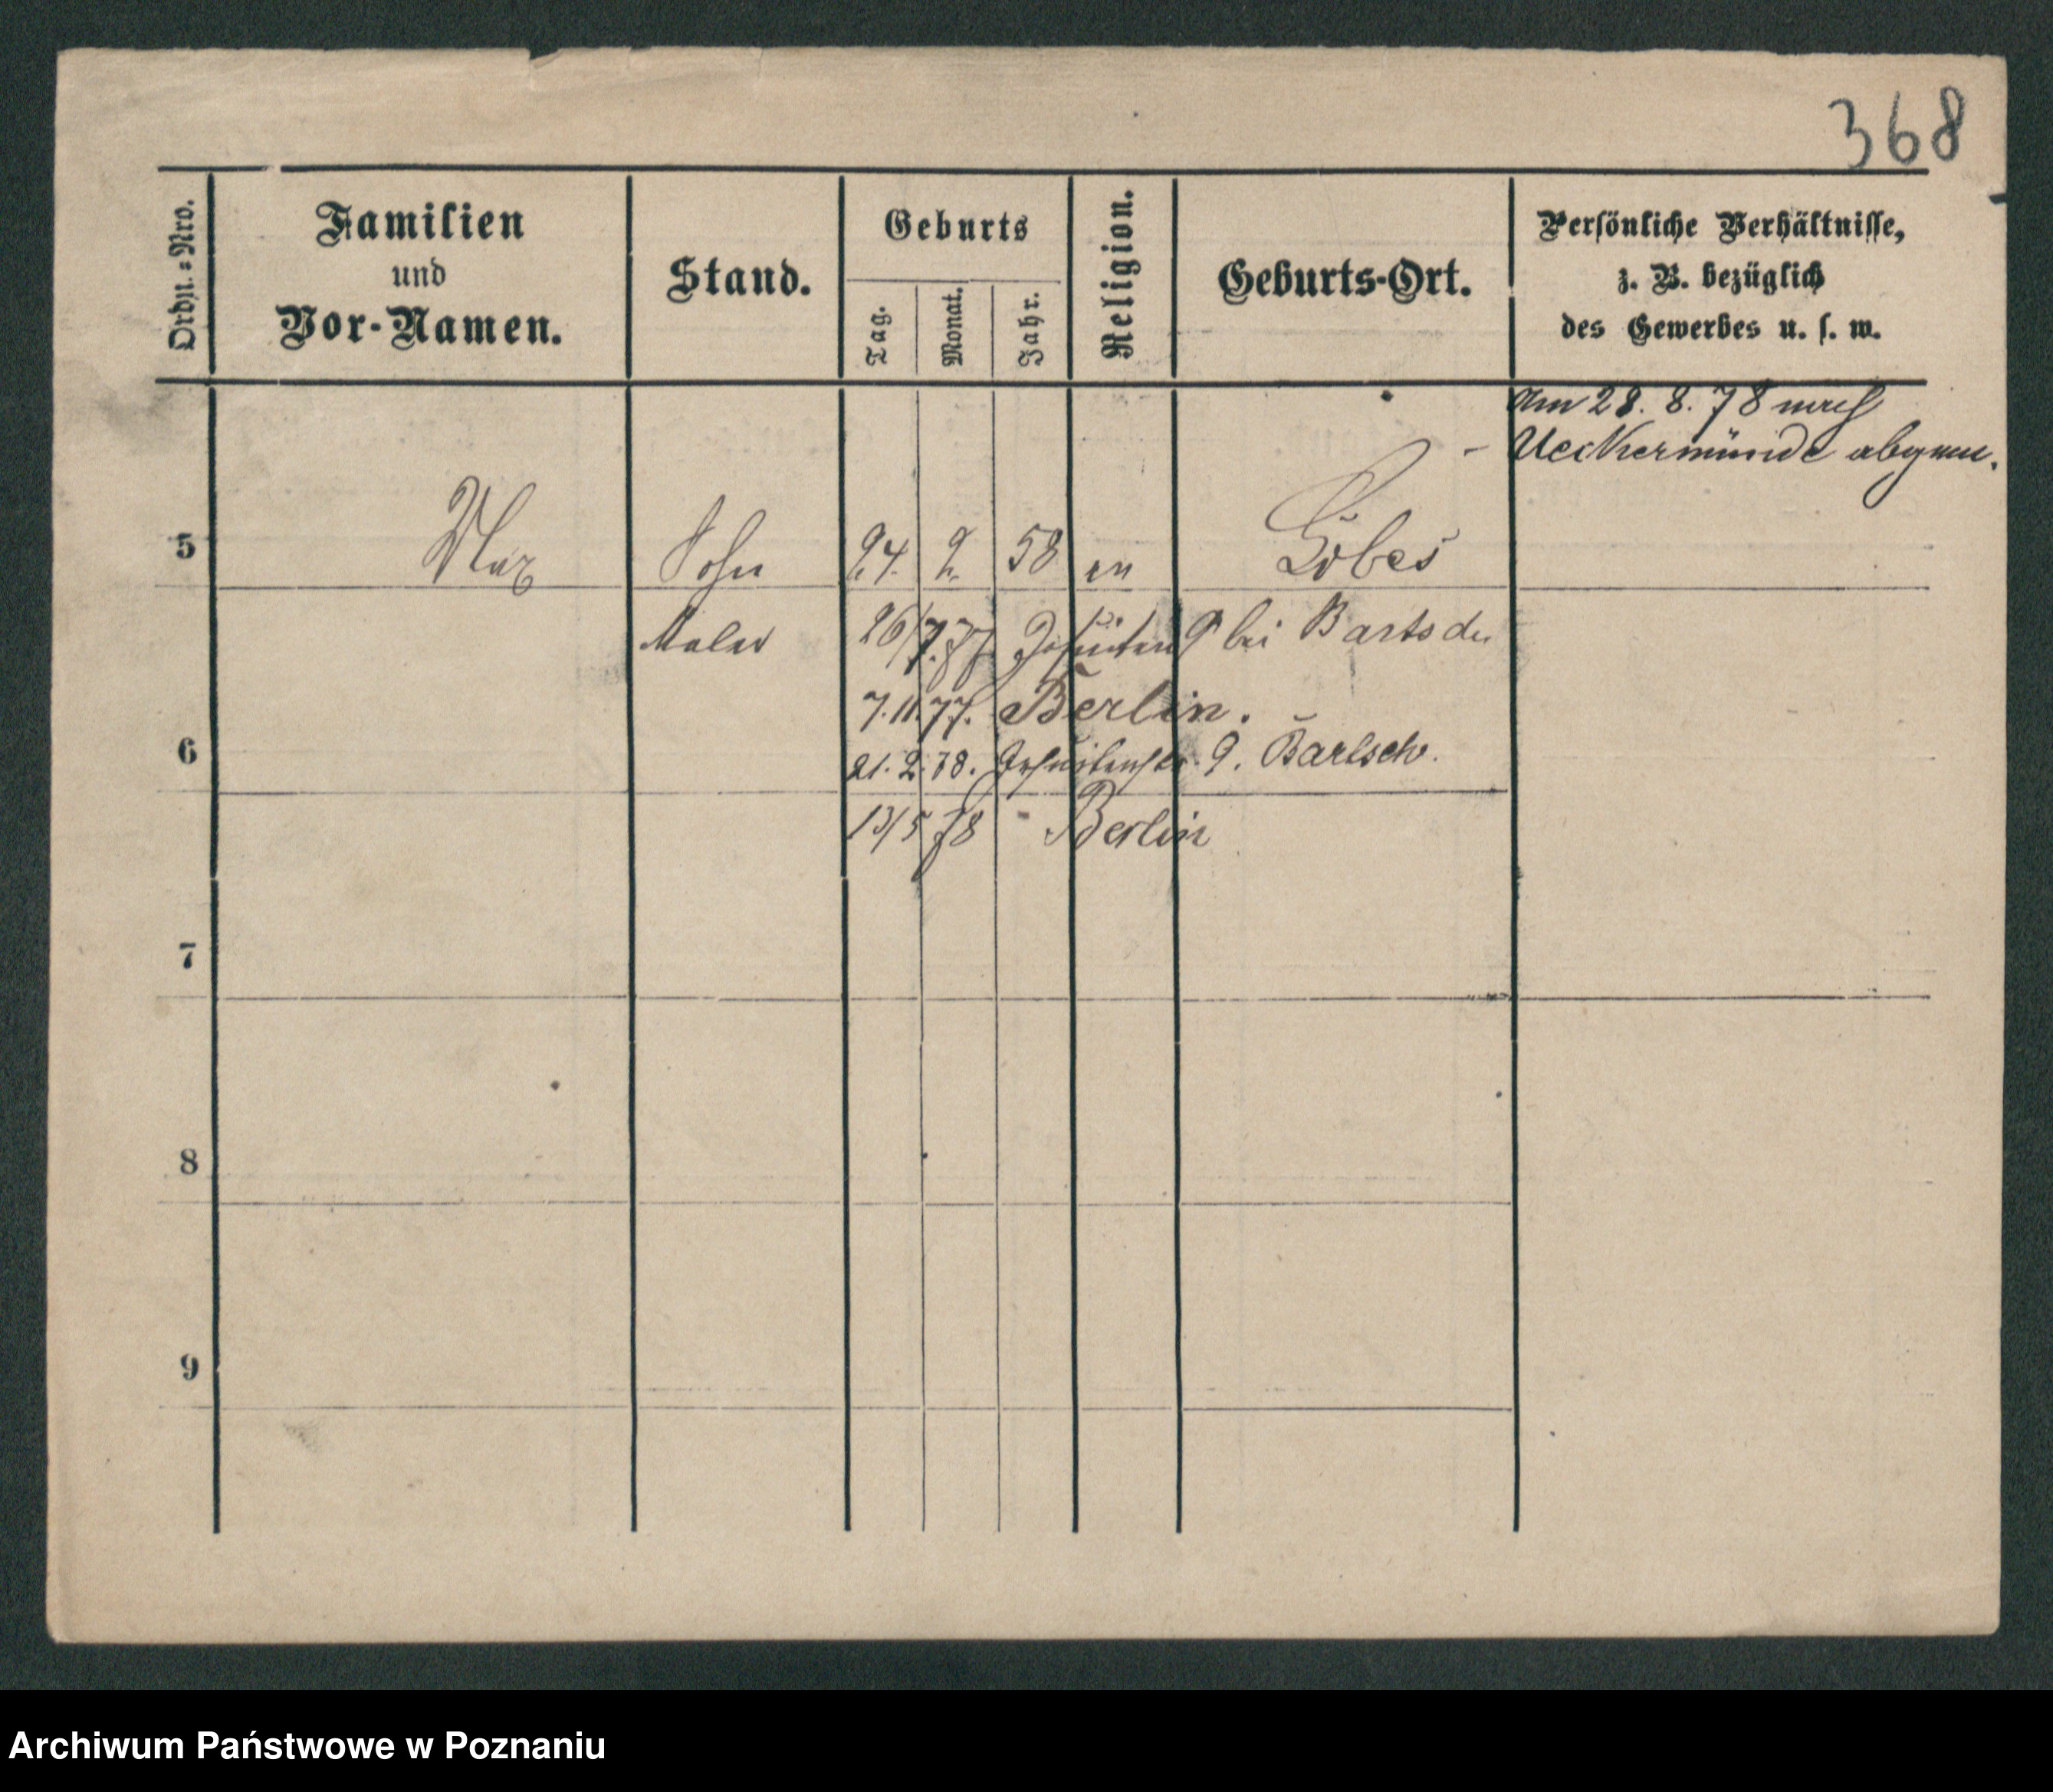 368
Ordn.=Nro.
Familien
und
Vor-Namen.
Stand.
Geburts
Tag.
Monat.
Jahr.
Religion.
Geburts-Ort.
Persönliche Verhältnisse,
z. B. bezüglich
des Gewerbes u. s. w.
Am 28. 8. 78 nach
Ueckermünde abgem.
5 Max Sohn 24. 2. 58 ev Löbes
Maler 26/7. 77. 9 bei Bartsch
7.11.77. Berlin.
6
21.2.78. Jesuitenstr. 9. Bartsch.
13/5 78 - Berlin
7
8
9
Archiwum Państwowe w Poznaniu